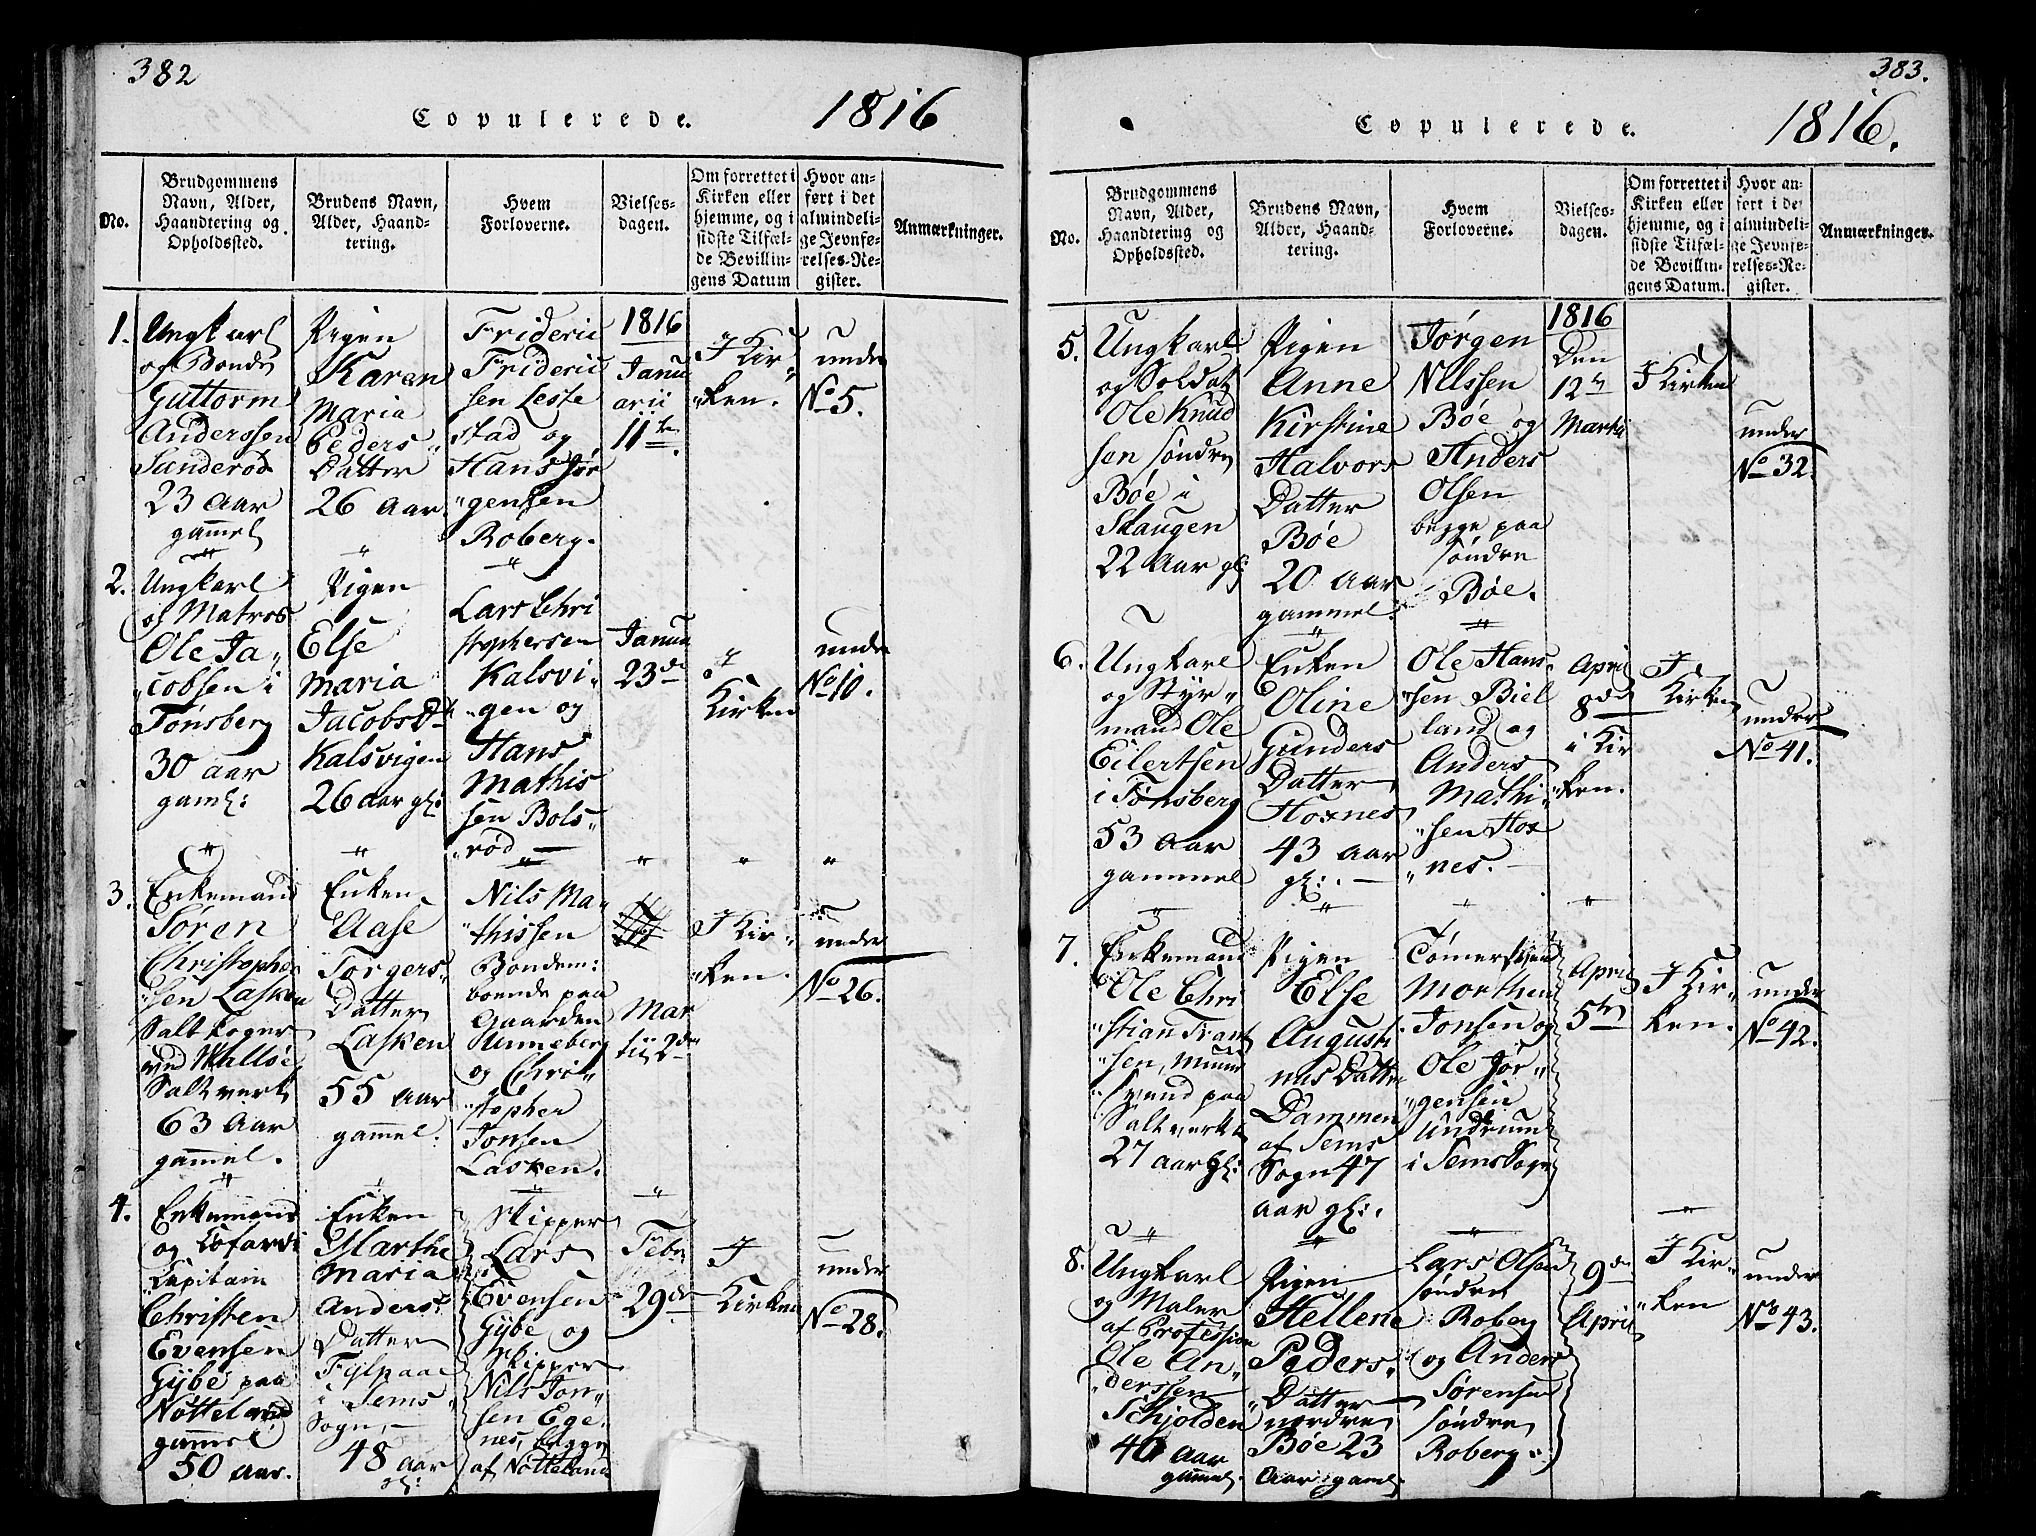 382
Copulerede.
1816
No.
Brudgommens
Navn, Alder,
Haandtering og
Opholdssted.
Brudens Navn,
Alder, Haand-
tering.
Hvem
Forloverne.
Vielses-
dagen.
Om forrettet i
Kirken eller
hjemme, og i
sidste Tilfæl-
de Bevillin-
gens Datum
Hvor an-
ført i det
almindeli-
ge Jevnfø-
relses-Re-
gister.
Anmærkninger.
1.
Ungkarl
og Bonde
Guttorm
Anderssen
Sanderød
23 Aar
gammel
Pigen
Karen
Maria
Peders
Datter
26 Aar
Frideric
Frideric
sen Leste
stad og
Hans Jør
"gensen
Roberg.
1816
Janu
arii
11te
I Kir-
"ken.
under
No 5.
2.
Ungkarl
og Matros
Ole Ja"
"cobsen i
Tønsberg
30 aar
gaml:
Pigen
Else
Maria
Jacobs Dt
Kalsvigen
26 aar gl:
Lars Chri
stophersen
Kalsvi"
"gen og
Hans
Mathis
sen Bols"
"rød
Janua
23de
I
Kirken
under
No 10.
3.
Enkemand
Søren
Christopher
"sen Lasken
Saltkoger
ved Walløe
Saltverk
63 Aar
gammel.
Enken
Aase
Torgers"
Datter
Lasken
55 aar
gammel.
Nils Ma"
"thissen
Bondem:
boende paa
Gaarden
Unneberg
og Chri"
"stopher
Jonsen
Lasken.
Mar
tii 2de
I Kir"
"ken.
under
No 26.
4.
Enkemand
og Cofardi
Capitain
Christen
Evensen
Gybe paa
Nøtteland
gammel
50 aar.
Enken
Marthe
Maria
Anders"
Datter
i Sems"
Sogn,
48 aar
gl:
Skipper
Lars
Evensen
Gybe og
Skipper
Nils Jon"
sen Ege"
nes, begge
af Nøtteland
Febr
29de
I
Kirken
under
No 28.
383.
Copulerede.
1816.
No.
Brudgommens
Navn, Alder,
Haandtering og
Opholdssted.
Brudens Navn,
Alder, Haand-
tering.
Hvem
Forloverne.
Vielses-
dagen.
Om forrettet i
Kirken eller
hjemme, og i
sidste Tilfæl-
de Bevillin-
gens Datum.
Hvor an-
ført i det
almindeli-
ge Jevnfø-
relses-Re-
gister.
Anmærkninger.
5.
Ungkarl
og Soldat
Ole Knud
sen søndre
Bøe i
Skaugen
22 Aar gl:
Pigen
Anne
Kirstine
Halvors
Datter
Bøe
20 aar
gammel.
Jørgen
Nilssen
Bøe og
Anders
Olsen
begge paa
søndre
Bøe.
1816
Den
12te
Martii
I Kirken
under
No 32.
6.
Ungkarl
og Styr"
mand Ole
Eilertsen
i Tønsberg
53 Aar
gammel
Enken
Oline
Gunders
Datter
Hoxnes
43 aar
gl:
Ole Hans"
"sen Biel
land og
Anders
Mathi"
"sen Hox
"nes.
April
8de
i Kir
"ken.
I
Kirken
under
No 41.
7.
Enkemand
Ole Chri
"stian Frant
"sen, Muur
"svend paa
Saltverket
27 aar gl:
Pigen
Else
Augusti
nus Datter
Dammen
af Sems
Sogn 47
aar gl:.
Tømersvend
Morthen
Jonsen og
Ole Jør"
"gensen
Undrum
i Sems Sogn
April
5te
I Kir"
ken.
under
No 42.
8.
Ungkarl
og Maler
af Profession
Ole An"
"derssen
Schjolden
40 aar
gammel.
Pigen
Hellene
Peders"
"Datter
nordre
Bøe 23
Aar gaml
Lars Olsen
søndre
Roberg
og Anders
Sørensen
søndre
Roberg.
9de
April
I Kir"
"ken
under
No 43.